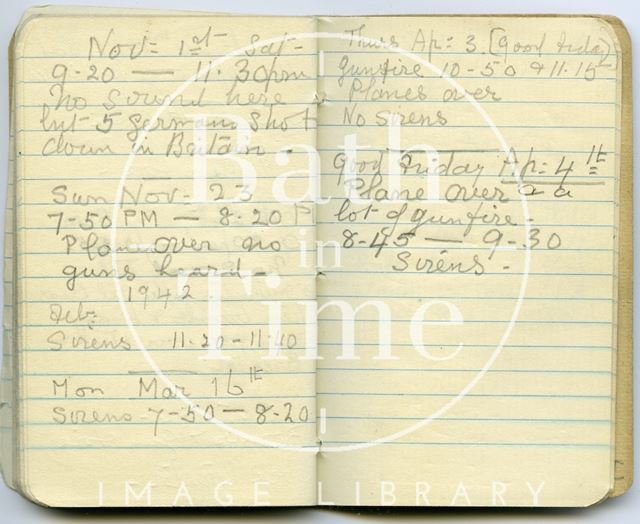 Nov= 1st Sat-
9-20 — 11.30pm
No Sound here
but 5 Germans Shot
down in Britain -
Sun Nov= 23
7-50 PM — 8.20 P
Plane over no
guns heard -
1942
Feb:
Sirens 11.20-11.40
Mon Mar 16th
Sirens 7-50 — 8-20
Thurs Ap= 3. [Good Friday]
Gunfire 10-50 & 11.15
Planes over
No Sirens
Good Friday Ap= 4th
Plane over & a
lot of gunfire -
8-45 — 9-30
Sirens -
Bath
in
Time
IMAGE LIBRARY